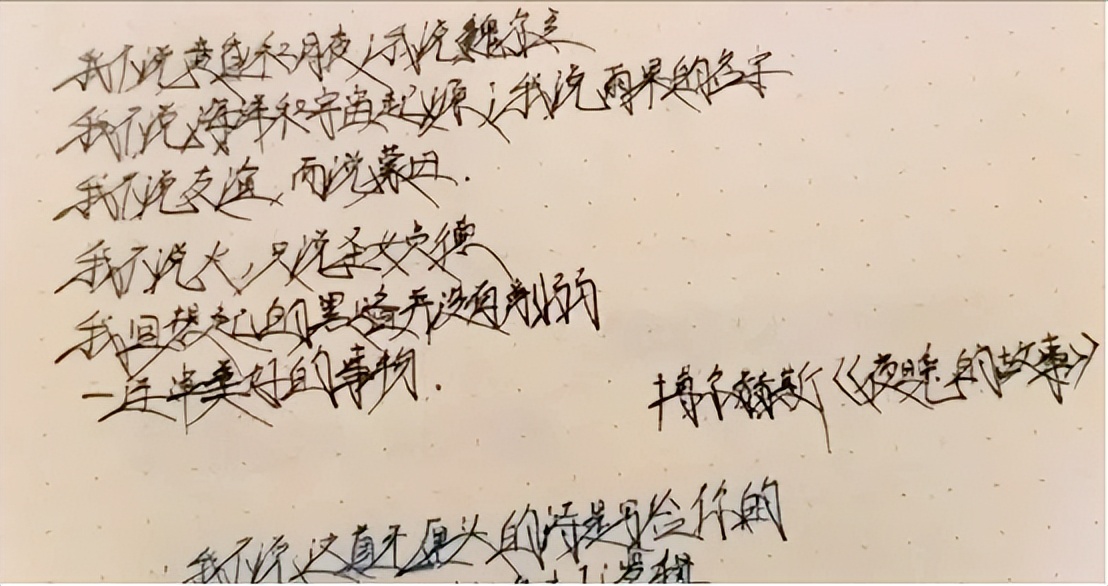 我不说黄昏和月夜;我说魏尔兰
我不说海洋和宇宙起源;我说雨果的名字
我不说友谊,而说蒙田.
我不说火,只说圣女贞德
我回想起的黑暗并没有削弱
一丘半美好的事物.
博尔赫斯《夜晚的故事》
我不说这真无厘头的诗是写给你的